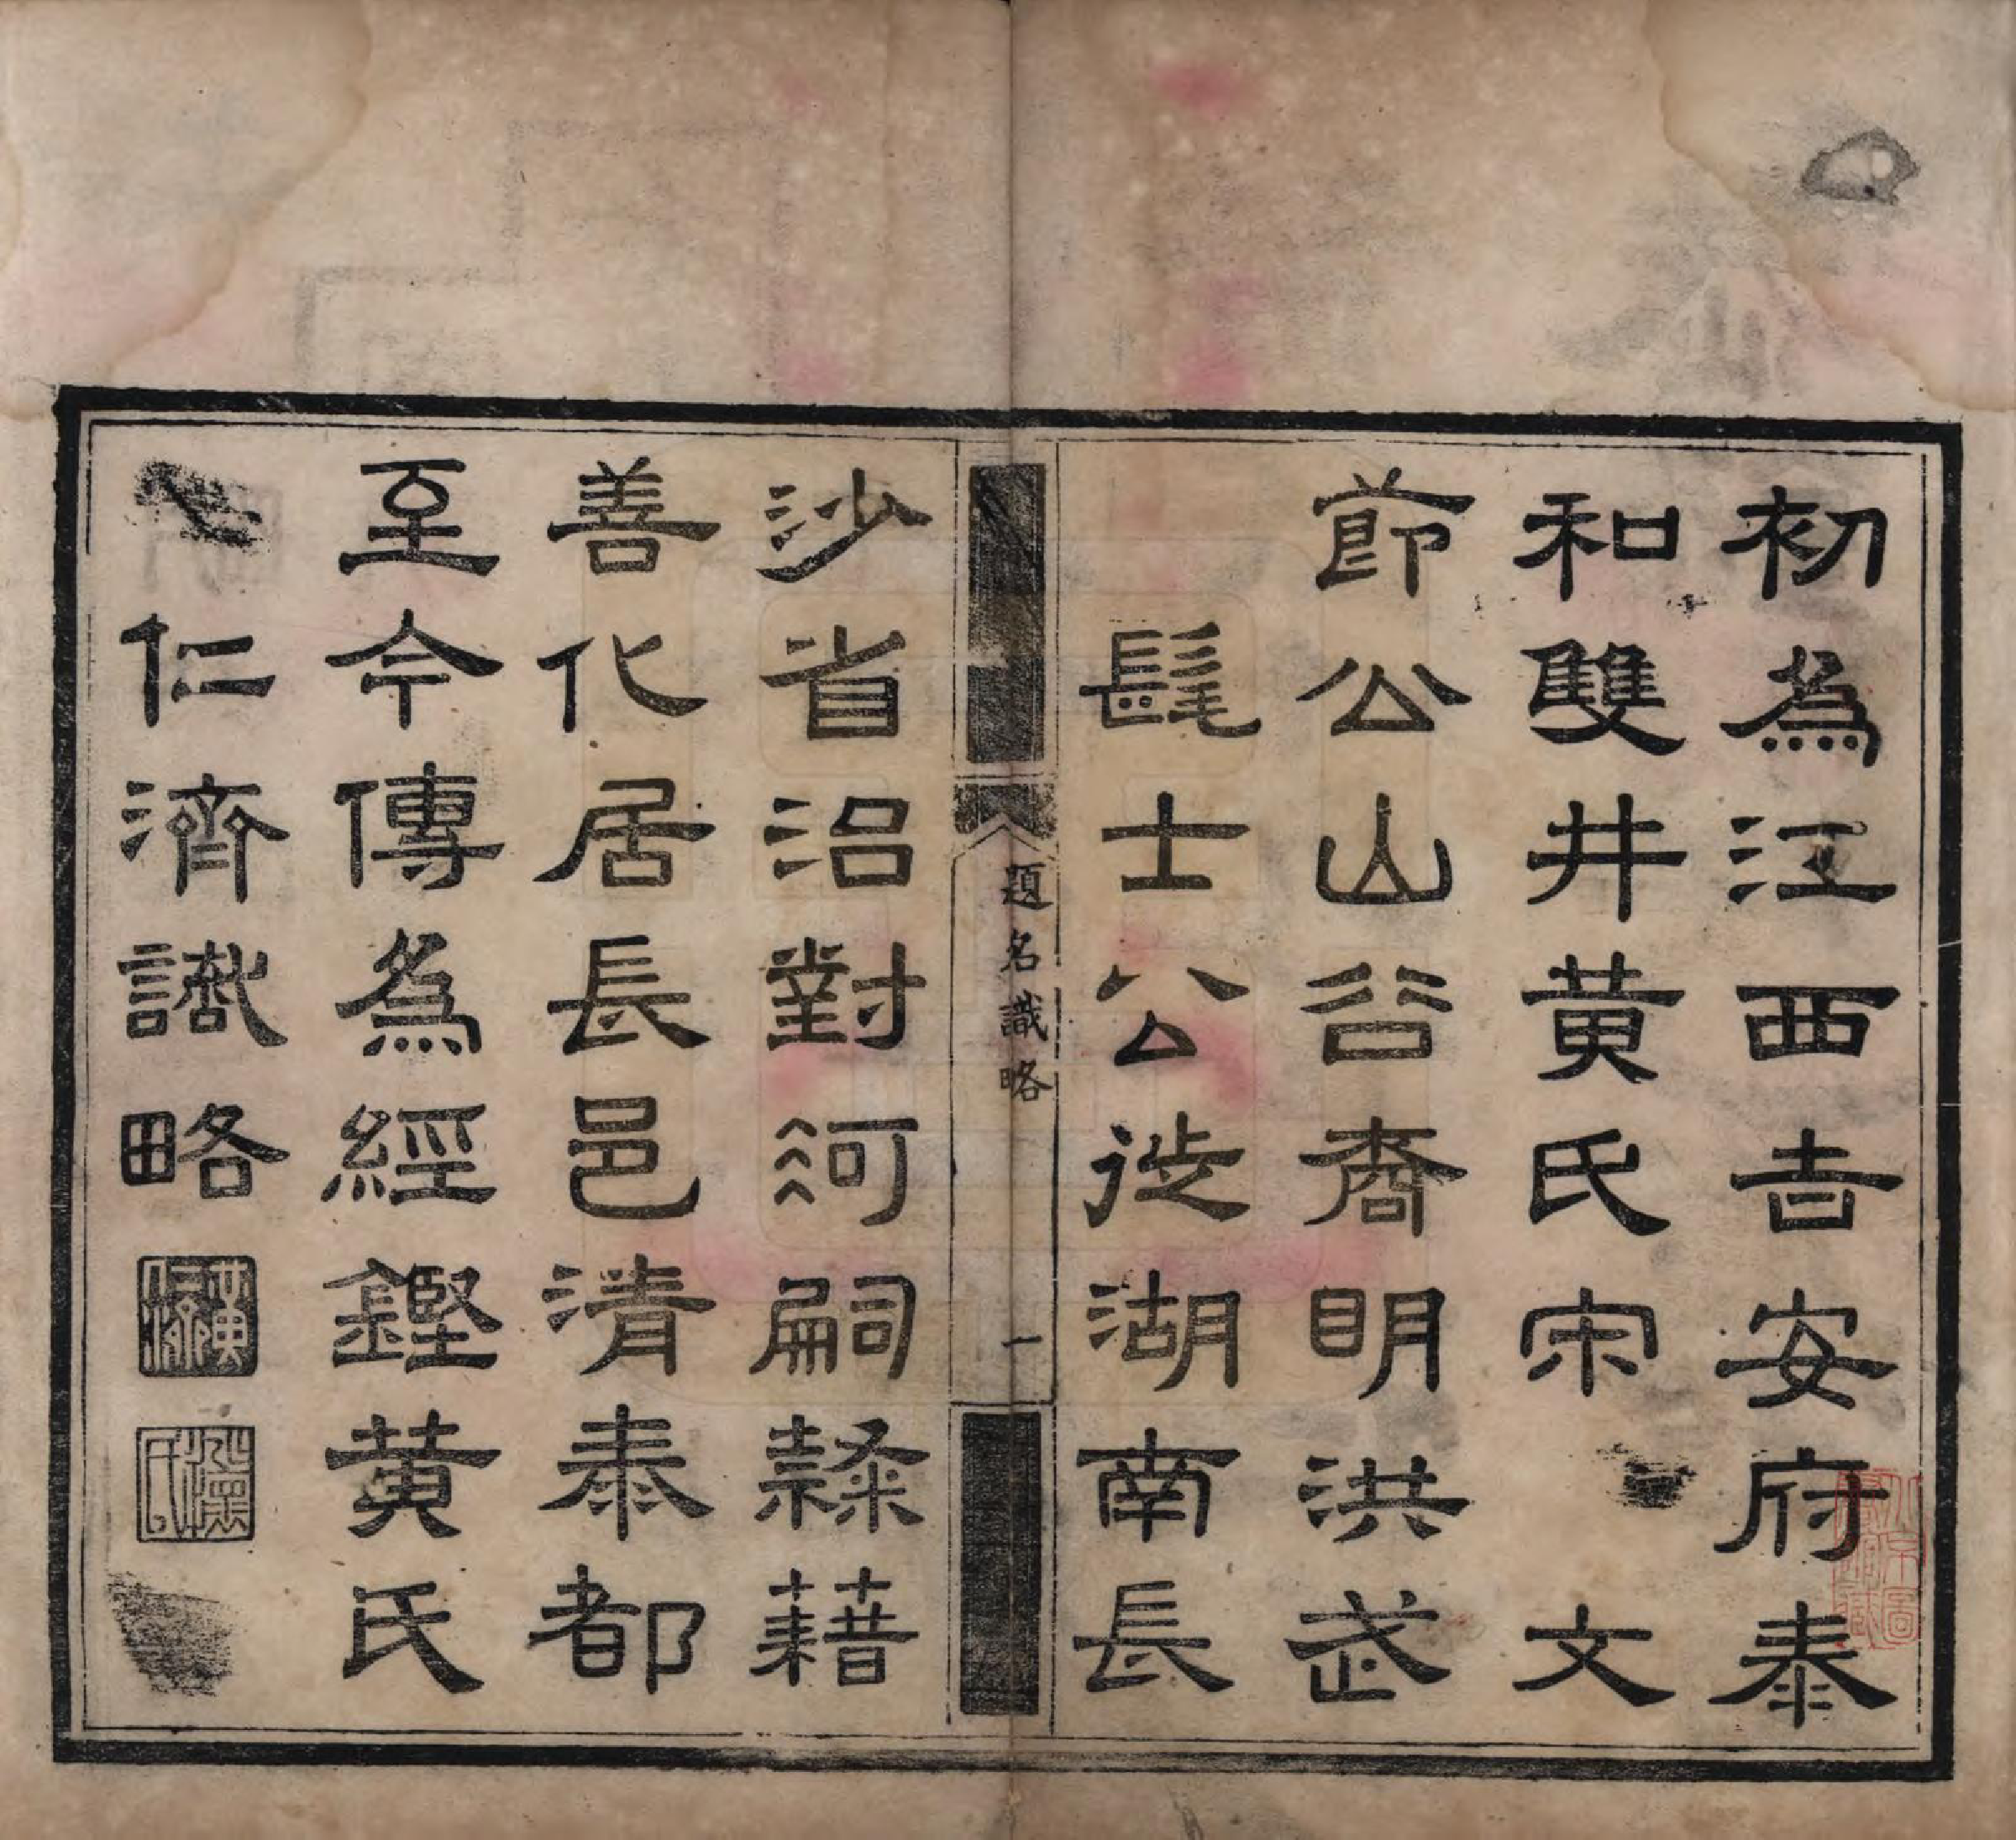 初為江西吉安府泰
和雙井黄氏宋 文
節公山谷裔明洪武
髦士公徙湖南長
題名識略 一
沙省治對河嗣隸藉
善化居長邑清泰都
至今傳為經鏗黄氏
仁濟識略